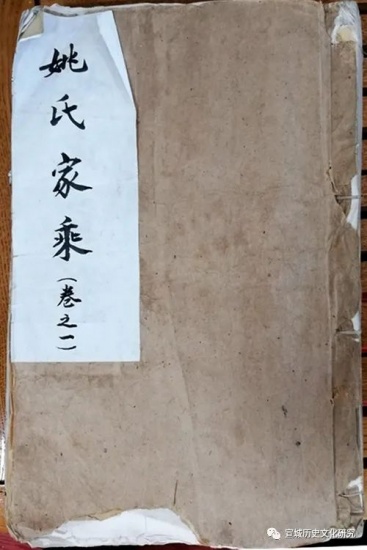 姚氏家乘（卷之一）
宣城历史文化研究